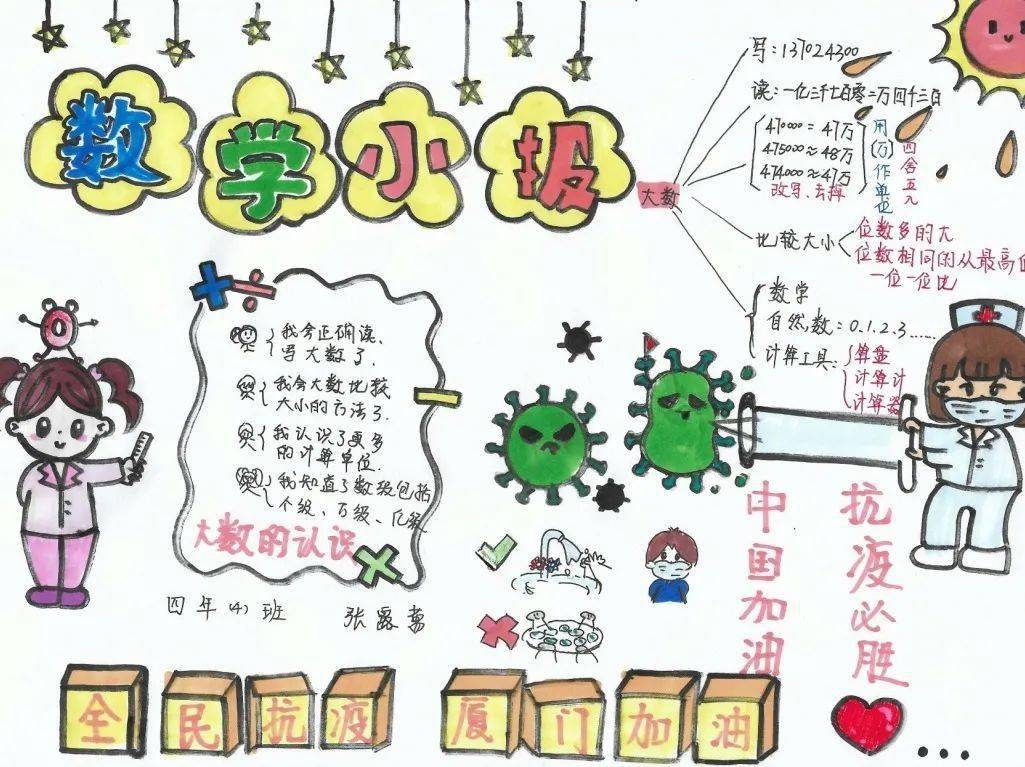 数学小报
大数
写：137024300
读：一亿三千七百零二万四千三百
470000=47万
475000≈48万
474000≈47万
改写、去掉
用（万）作单位
四舍五入
比较大小
位数多的大
位数相同的从最高位
一位一位比
数学
自然数：0.1.2.3……
计算工具：
算盘
计算计
计算器
我会正确读、
写大数了.
我会大数比较
大小的方法了.
我认识了更多
的计算单位.
我知道了数级包括
个级、万级、亿级
大数的认识
四年(4)班
中国加油
抗疫必胜
全民抗疫
厦门加油